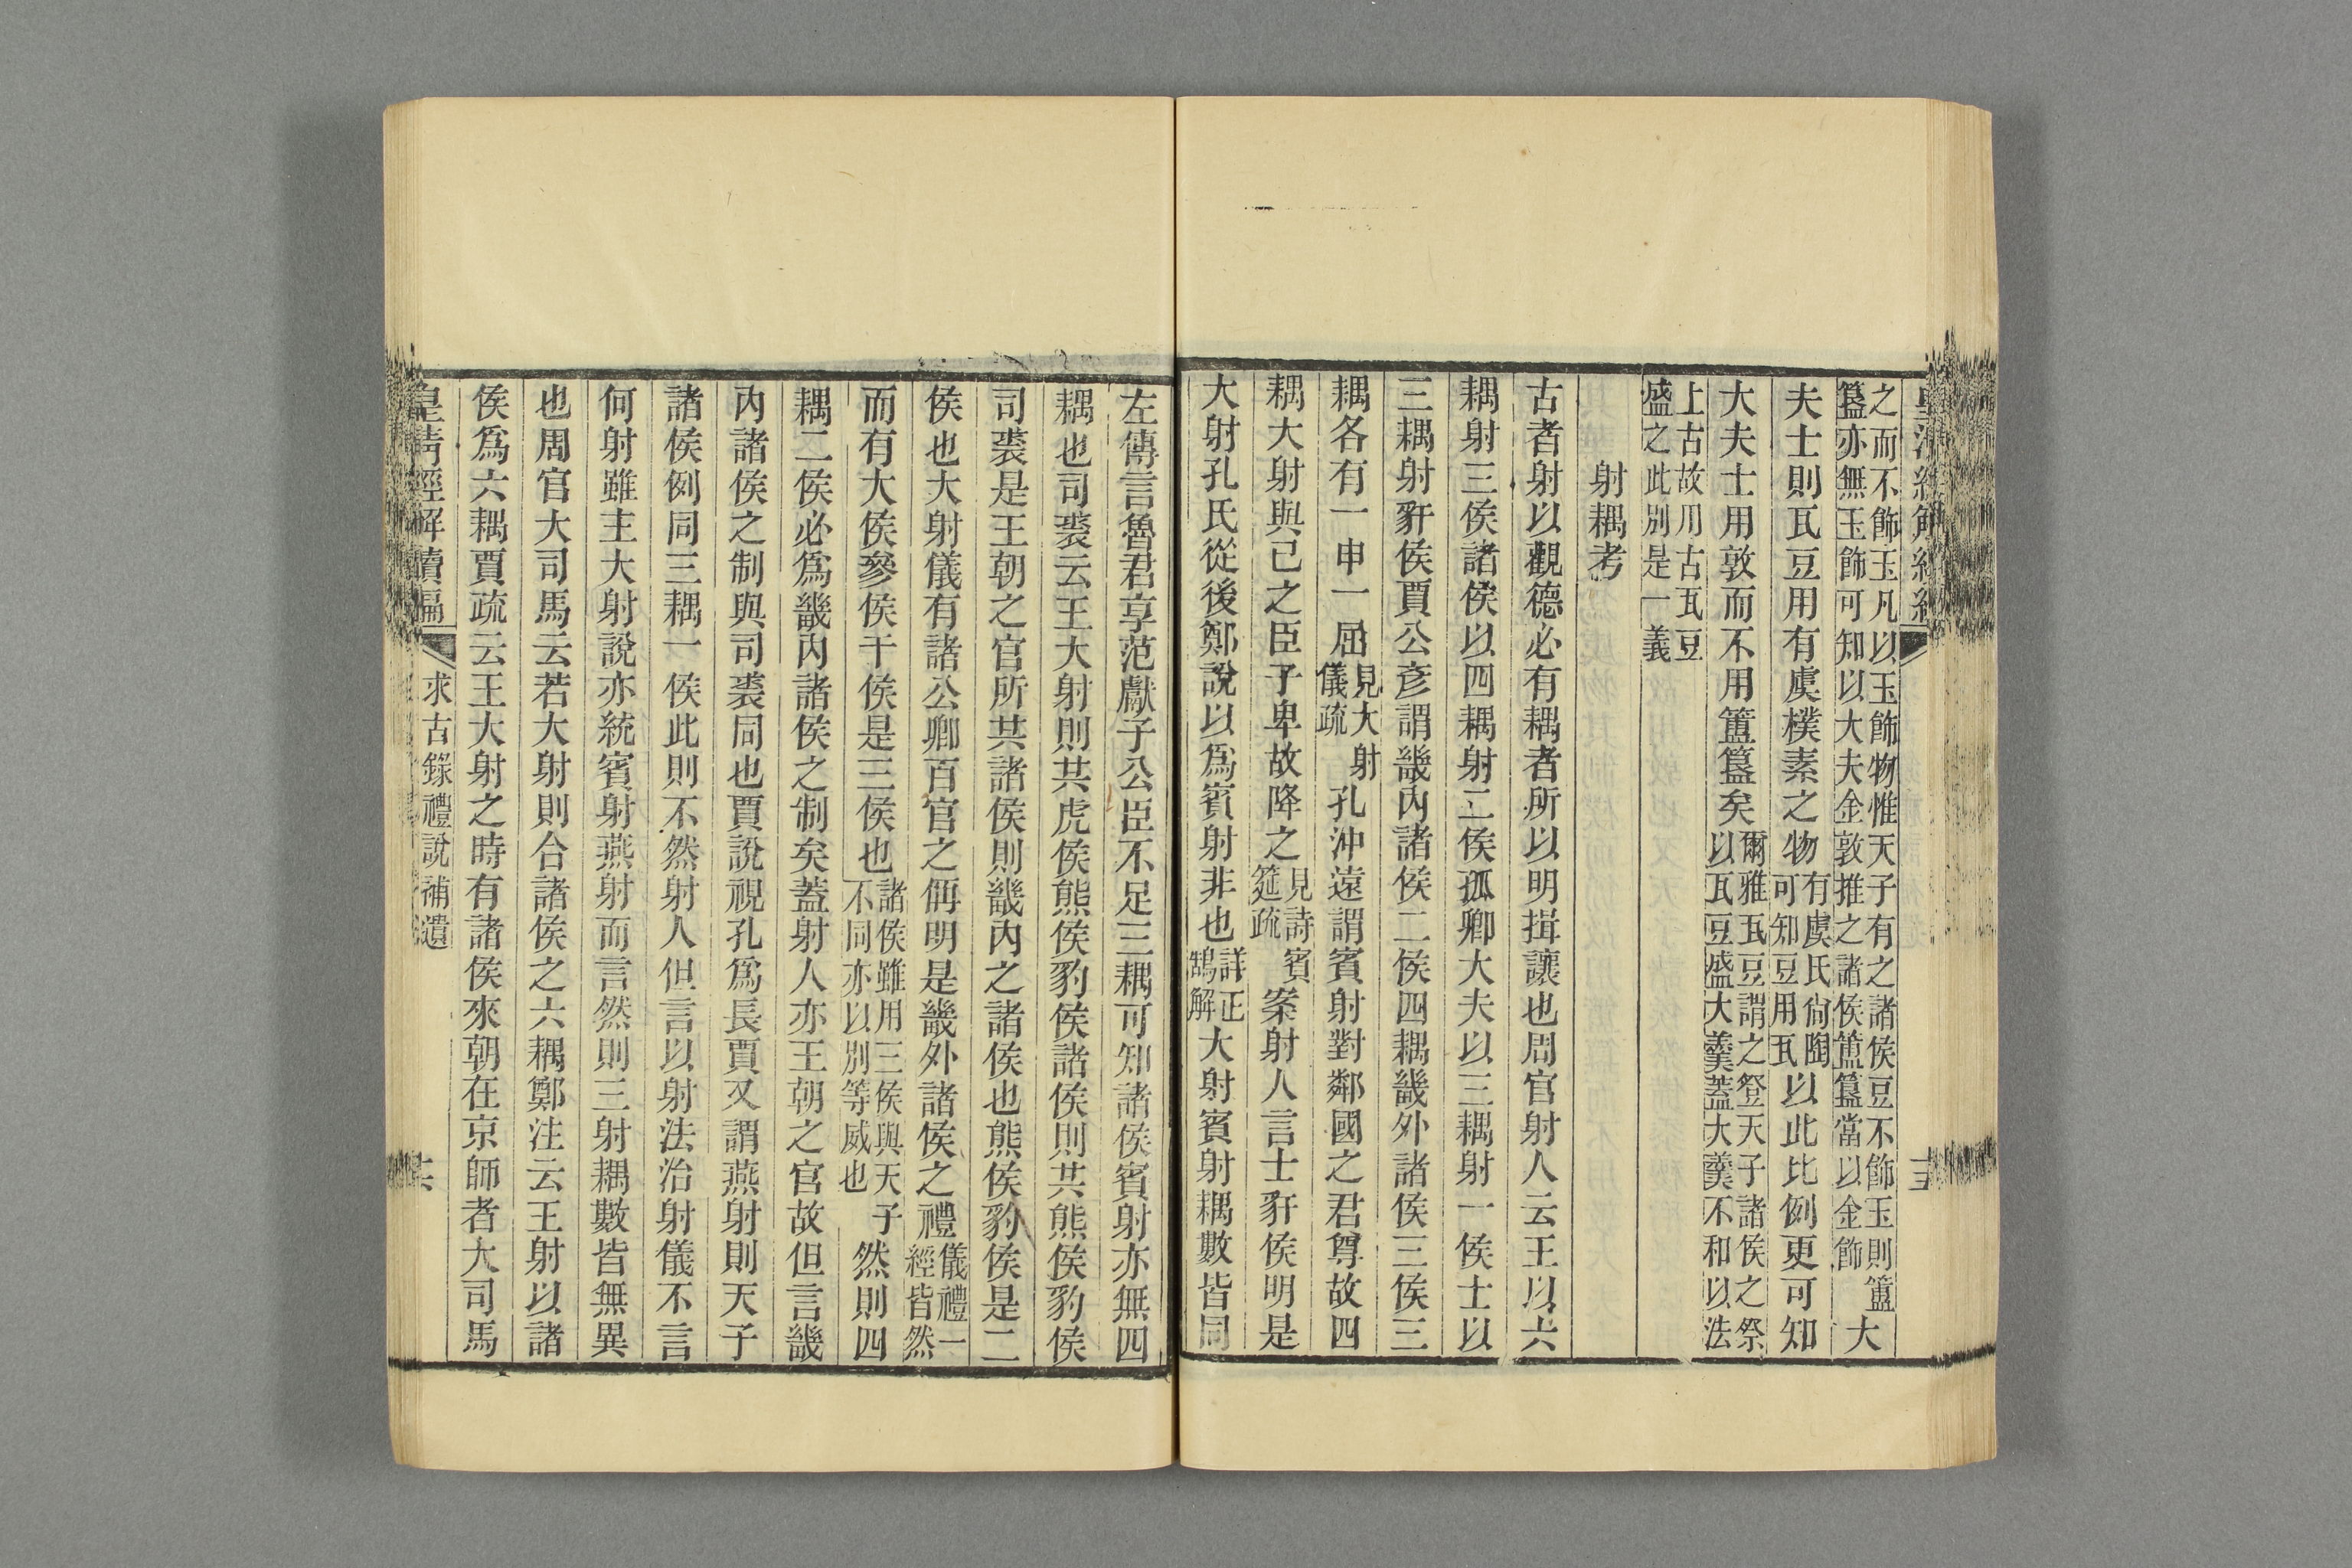 之而不飾玉凡以玉飾物惟天子有之諸侯豆不飾玉則簠
簋亦無玉飾可知以大夫金敦推之諸侯簠簋當以金飾大
夫士則瓦豆用有虞樸素之物有虞氏尙陶可知豆用瓦以此比例更可知
大夫士用敦而不用簠簋矣爾雅瓦豆謂之登天子諸侯之祭以瓦豆盛大羹蓋大羹不和以法
上古故用古瓦豆盛之此別是一義
射耦考
古者射以觀德必有耦者所以明揖讓也周官射人云王以六
耦射三侯諸侯以四耦射二侯孤卿大夫以三耦射一侯士以
三耦射豻侯賈公彥謂畿內諸侯二侯四耦畿外諸侯三侯三
耦各有一申一屈見大射儀疏孔沖遠謂賓射對鄰國之君尊故四
耦大射與己之臣子卑故降之見詩賓筵疏案射人言士豻侯明是
大射孔氏從後鄭說以爲賓射非也詳正鵠解大射賓射耦數皆同
左傳言魯君享范獻子公臣不足三耦可知諸侯賓射亦無四
耦也司裘云王大射則共虎侯熊侯豹侯諸侯則共熊侯豹侯
司裘是王朝之官所共諸侯則畿內之諸侯也熊侯豹侯是二
侯也大射儀有諸公卿百官之偁明是畿外諸侯之禮儀禮一經皆然
而有大侯參侯干侯是三侯也諸侯雖用三侯與天子不同亦以別等威也然則四
耦二侯必爲畿內諸侯之制矣蓋射人亦王朝之官故但言畿
內諸侯之制與司裘同也賈說視孔爲長賈又謂燕射則天子
諸侯例同三耦一侯此則不然射人但言以射法治射儀不言
何射雖主大射說亦統賓射燕射而言然則三射耦數皆無異
也周官大司馬云若大射則合諸侯之六耦鄭注云王射以諸
侯爲六耦賈疏云王大射之時有諸侯來朝在京師者大司馬
皇清經解續編
求古錄禮說補遺